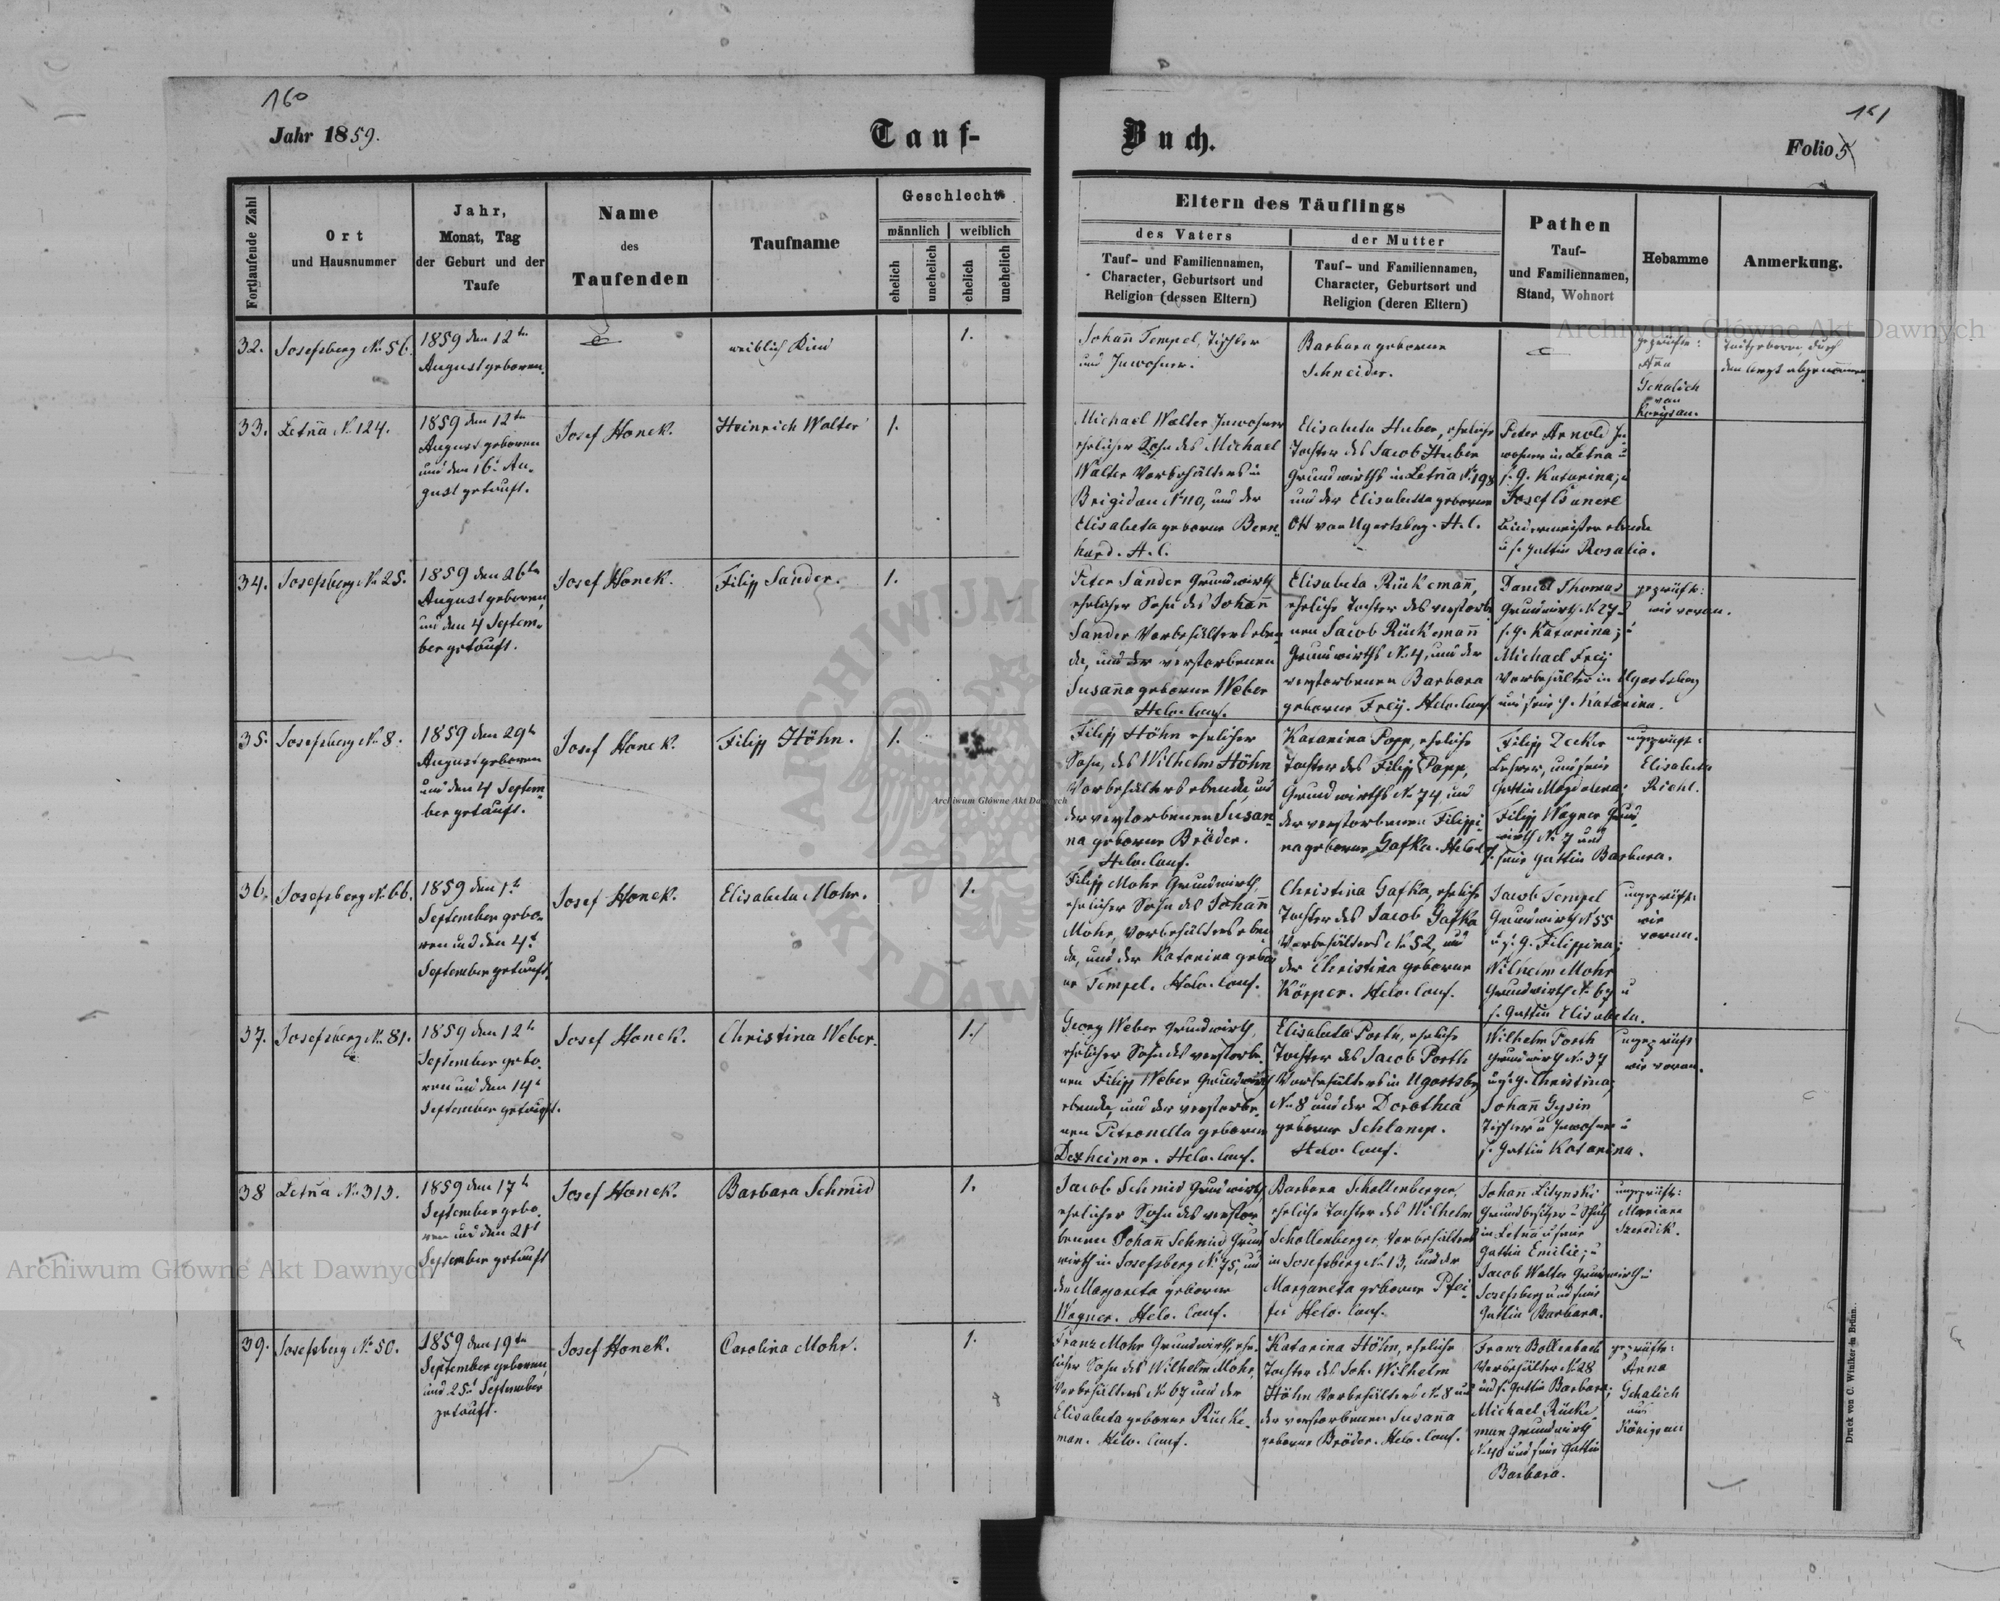 160
Jahr 1859.
Tauf-
Buch.
Folio 5
Fortlaufende Zahl
Ort
und Hausnummer
Jahr,
Monat, Tag
der Geburt und der
Taufe
Name
des
Taufenden
Taufname
Geschlecht
männlich
weiblich
ehelich
unehelich
ehelich
unehelich
Eltern des Täuflings
des Vaters
Tauf- und Familiennamen,
Character, Geburtsort und
Religion (dessen Eltern)
der Mutter
Tauf- und Familiennamen,
Character, Geburtsort und
Religion (deren Eltern)
Pathen
Tauf-
und Familiennamen,
Stand, Wohnort
Hebamme
Anmerkung.
32.
Josefsberg No 56.
1859 den 12tn
August geboren.
weiblich Kind
1.
Johañ Tempel, Tischler
und Inwohner.
Barbara geborne
Schneider.
geprüfte:
Aña
Schalich
von
Königsau.
33.
Letña N. 124.
1859 den 12tn
August geboren
und den 16t Au-
gust getauft.
Josef Honek.
Heinrich Walter
1.
Michael Walter Inwohner
ehelicher Sohn des Michael
Walter Vorbehälters in
Brigidau No 110, und der
Elisabeta geborne Bern-
hard. H. C.
Elisabeta Huber, eheliche
Tochter des Jacob Huber
Grundwirths in Letña No 198
und der Elisabetta geborne
Ott von Ugartsberg. H. C.
Peter Arnold In-
wohner in Letña u
s. G. Katarina; u
Josef
Bindermeister ebenda
u s. Gattin Rosalia.
34.
Josefsberg No 25.
1859 den 26tn
August geboren,
und den 4 Septem-
ber getauft.
Josef Honek.
Filipp Sander.
1.
Peter Sander Grundwirth
ehelicher Sohn des Johañ
Sander Vorbehälters eben-
da, und der verstorbenen
Susaña geborne Weber
Helv. Conf.
Elisabeta Rückemañ,
eheliche Tochter des verstorbe-
nen Jacob Rückemañ
Grundwirths No 4, und der
verstorbenen Barbara
geborne Frey. Helv. Conf.
Daniel Thomas
Grundwirth N. 27 u
s. G. Katarina; u
Michael Frey
Vorbehälter in Ugartsberg
und seine G. Katarina.
geprüfte:
wie voran.
35.
Josefsberg No 8.
1859 den 29tn
August geboren
und den 4 Septem-
ber getauft.
Josef Honek.
Filipp Höhn.
1.
Filipp Höhn ehelicher
Sohn, des Wilhelm Höhn
Vorbehälters ebenda, und
der verstorbenen Susan-
na geborne Bröder.
Helv. Conf.
Katarina Popp, eheliche
Tochter des Filipp Popp,
Grundwirths No 74, und
der verstorbenen Filippi-
na geborne Gafka. Helv. Cf.
Filipp Decker
Lehrer, und seine
Gattin Magdalena;
Filipp Wagner Grund-
wirth No 7 und
seine Gattin Barbara.
ungeprüft:
Elisabeta
Riehl.
36.
Josefsberg No 66.
1859 den 1tn
September gebo-
ren und den 4t
September getauft.
Josef Honek.
Elisabeta Mohr.
1.
Filipp Mohr Grundwirth,
ehelicher Sohn des Johañ
Mohr, Vorbehälters eben-
da, und der Katarina gebor-
ne Tempel. Helv. Conf.
Christina Gafka, eheliche
Tochter des Jacob Gafka
Vorbehälters No 52, und
der Christina geborne
Körper. Helv. Conf.
Jacob Tempel
Grundwirth N 55
u s. G. Filippina;
Wilhelm Mohr
Grundwirth No 67 u
s. Gattin Elisabeta.
ungeprüft:
wie
voran.
37.
Josefsberg No 81.
1859 den 12tn
September gebo-
ren und den 14t
September getauft.
Josef Honek.
Christina Weber.
1.
Georg Weber Grundwirth,
ehelicher Sohn des verstorbe-
nen Filipp Weber Grundwirth
ebenda, und der verstorbe-
nen Petronella geborne
Dexheimer. Helv. Conf.
Elisabeta Porth, eheliche
Tochter des Jacob Porth
Vorbehälters in Ugartsbg
No 8 und der Dorothea
geborne Schlamp.
Helv. Conf.
Wilhelm Porth
Grundwirth No 37
u s. G. Christina;
Johañ Gysin
Tischler u Inwohner u
s. Gattin Katarina.
ungeprüft
wie voran.
38
Letña No 313.
1859 den 17tn
September gebo-
ren und den 21t
September getauft
Josef Honek.
Barbara Schmid
1.
Jacob Schmid Grundwirth,
ehelicher Sohn des verstor-
benen Johañ Schmid Grund-
wirth in Josefsberg No 75, und
der Margareta geborne
Wagner. Helv. Conf.
Barbara Schollenberger,
eheliche Tochter des Wilhelm
Schollenberger, Vorbehälters
in Josefsberg No 13, und der
Margareta geborne Pfei-
fer Helv. Conf.
Johañ Litynski
Grundbesitzer
in Letña u seine
Gattin Emilie; u
Jacob Walter Grundwirth in
Josefsberg und seine
Gattin Barbara.
ungeprüft:
Mariana
Szeredik.
39.
Josefsberg No 50.
1859 den 19tn
September geboren,
und 25t September
getauft.
Josef Honek.
Carolina Mohr.
1.
Franz Mohr Grundwirth, ehe-
licher Sohn des Wilhelm Mohr,
Vorbehälters No 67 und der
Elisabeta geborne Rücke-
man. Helv. Conf.
Katarina Höhn, eheliche
Tochter des Joh. Wilhelm
Höhn Vorbehälters No 8 und
der verstorbenen Susaña
geborne Bröder. Helv. Conf.
Franz Bollenbach
Vorbehälter N. 28
und s. Gattin Barbara;
Michael Rücke-
man Grundwirth
No 40 und seine Gattin
Barbara.
geprüfte:
Anna
Schalich
aus
Königsau
Druck von C. Winiker in Brünn.
Archiwum Główne Akt Dawnych
Archiwum Główne Akt Dawnych
Archiwum Główne Akt Dawnych